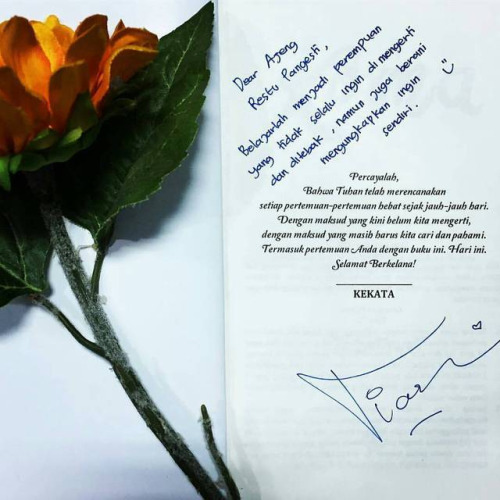 Dear Ajeng
Restu Pangesti,
Belajarlah menjadi perempuan
yang tidak selalu ingin dimengerti
dan ditebak, namun juga berani
mengungkapkan ingin
sendiri.
Percayalah,
Bahwa Tuhan telah merencanakan
setiap pertemuan-pertemuan hebat sejak jauh-jauh hari.
Dengan maksud yang kini belum kita mengerti,
dengan maksud yang masih harus kita cari dan pahami.
Termasuk pertemuan Anda dengan buku ini. Hari ini.
Selamat Berkelana!
KEKATA